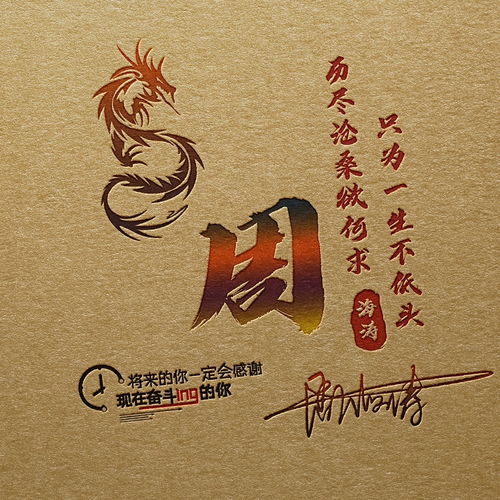 历尽沧桑欲何求
只为一生不低头
周
海涛
将来的你一定会感谢
现在奋斗ing的你